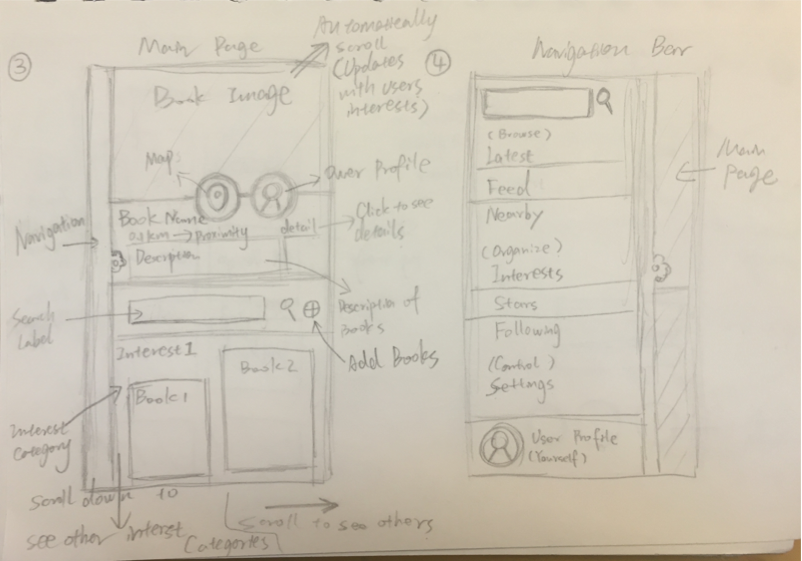 ③
Main Page
Automatically
scroll
(Updates
with users
interests)
Book Image
Map:
Owner Profile
Book Name
0.4km → Proximity
detail
Click to see
details
Navigation
Description
Description of
Books
Search
Label
Add Books
Interest 1
Book 1
Book 2
Interest
Category
Scroll down to
see other interest
Categories
Scroll to see others
④
Navigation Bar
(Browse)
Latest
Feed
Nearby
(Organize)
Interests
Stars
Following
(Control)
Settings
User Profile
(Yourself)
Main
Page